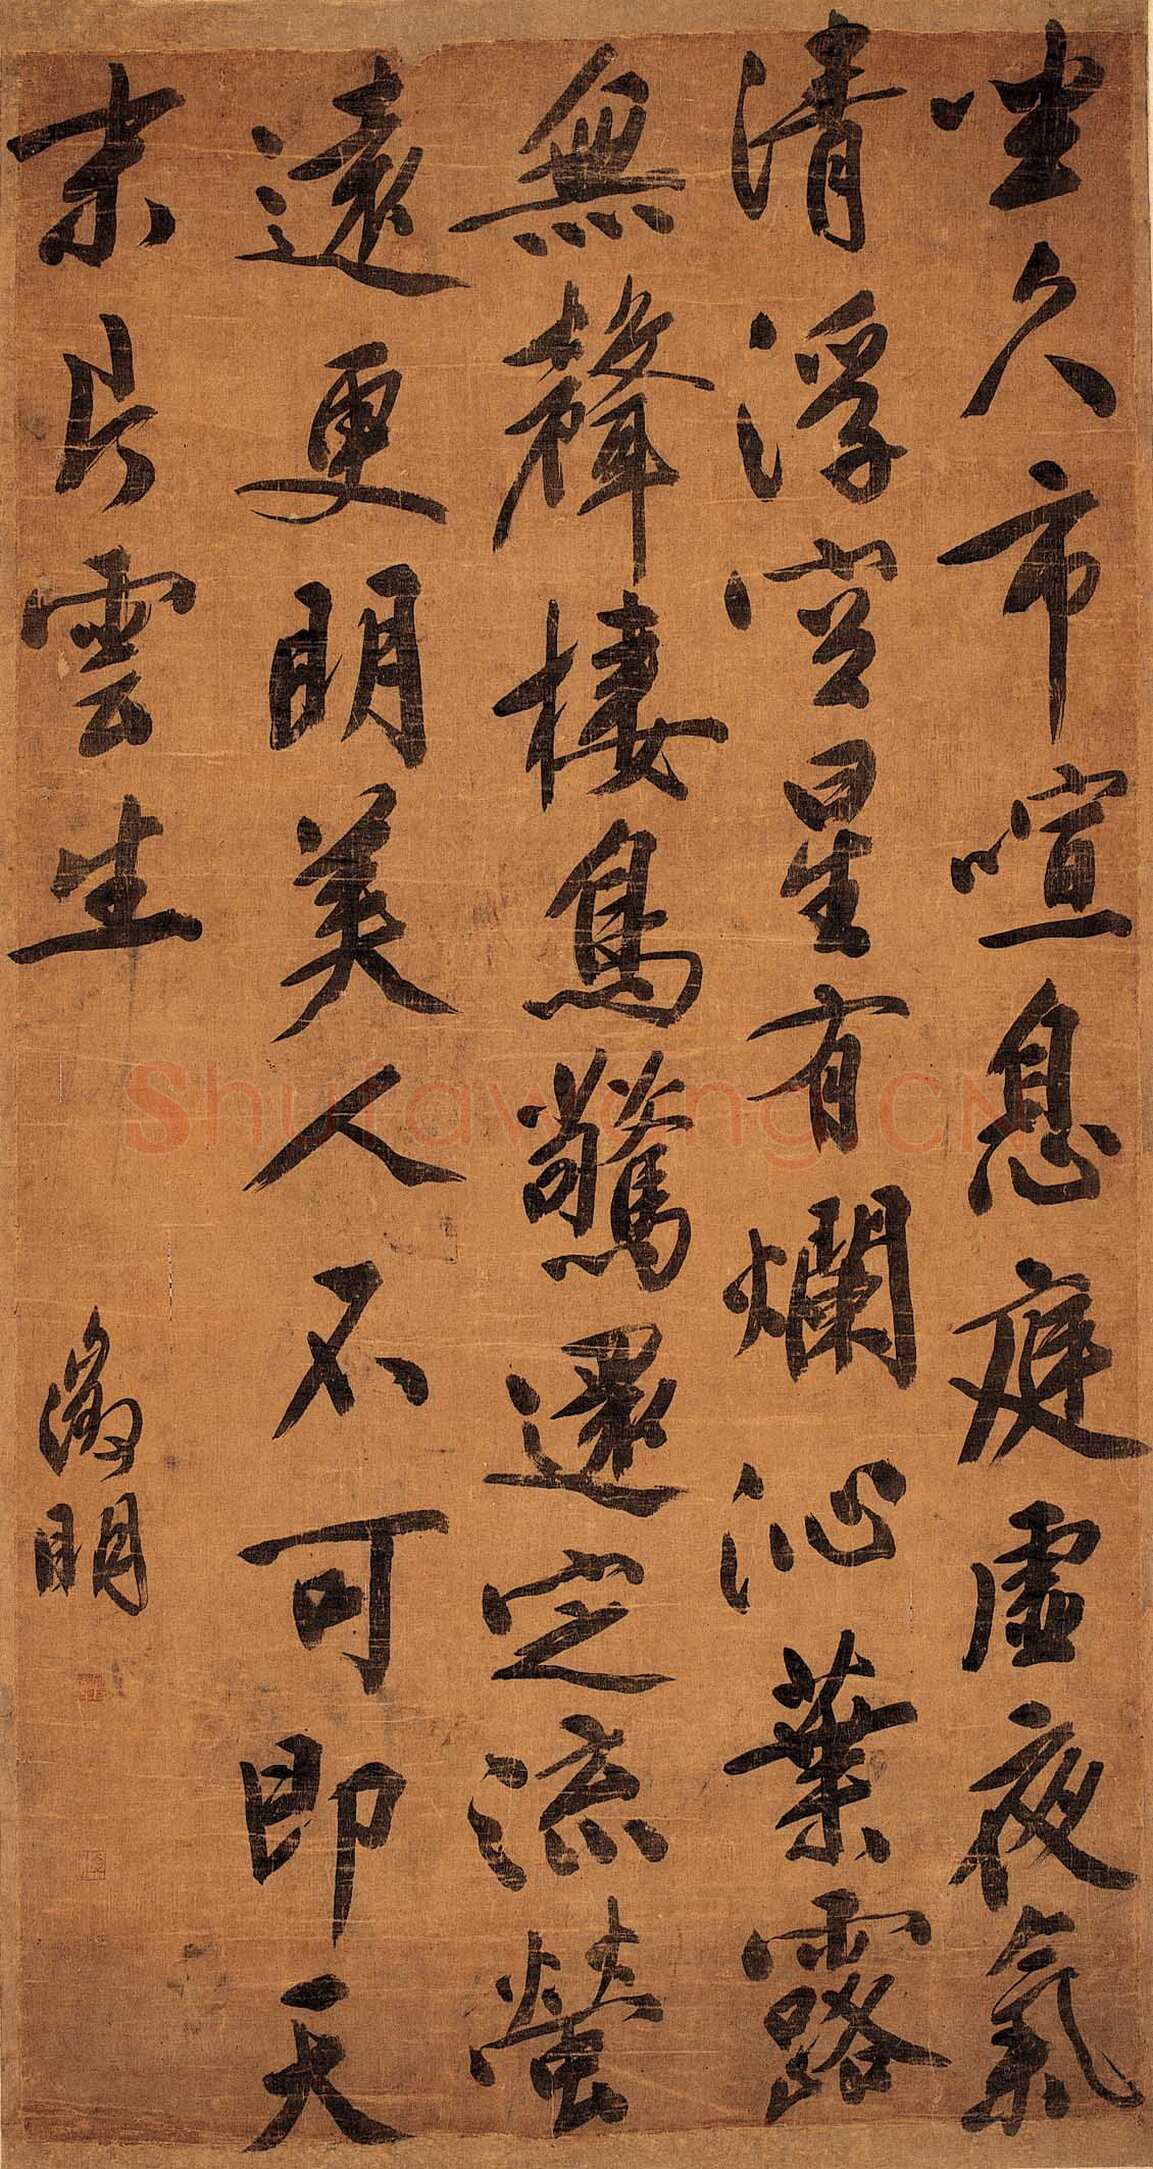 坐久市喧息庭虛夜氣
清浮空星有爛沁葉露
無聲棲鳥驚還定流螢
遠更明美人不可即天
末片雲生
徵明
Shufawang.CN